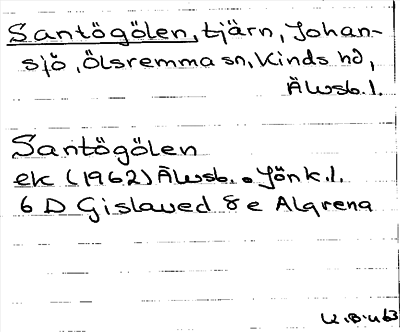 Santögölen, tjärn, Johan-
sjö, Ölsremma sn, Kinds hd,
Älvsb. l.
Santögölen
ek (1962) Älvsb. o Jönk. l.
6 D Gislaved 8 e Algrena